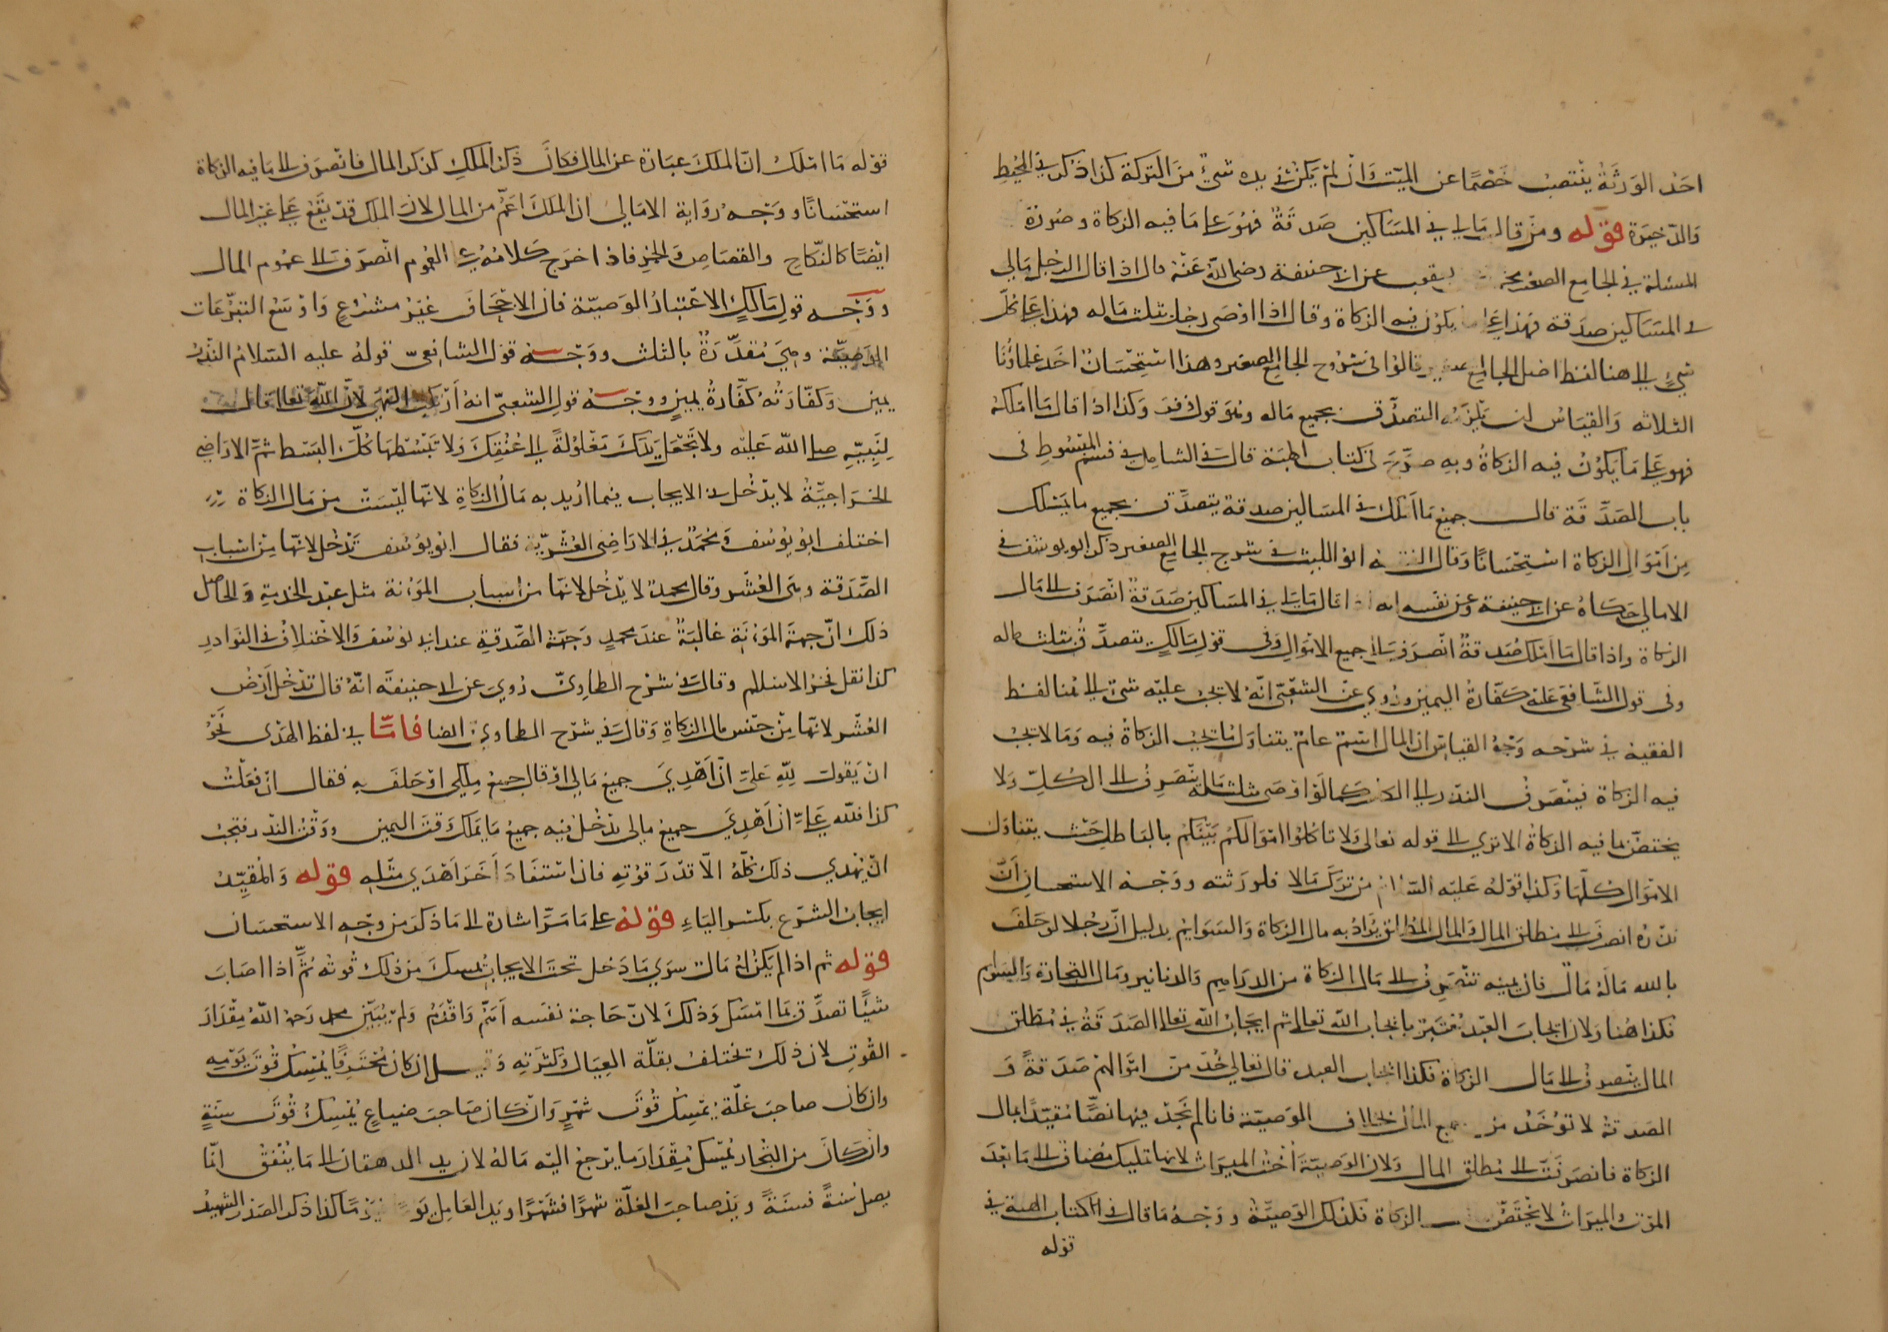 احد الورثة ينتصب خصما عن الميت وان لم يكن في يده شيء من التركة كذا ذكر في المحيط
والذخيرة قوله ومن قال مالي في المساكين صدقة فهو على ما فيه الزكاة وصورة
المسئلة في الجامع الصغير يعقوب عن ابي حنيفة رضي الله عنه قال اذا قال الرجل مالي
في المساكين صدقة فهذا على ما يكون فيه الزكاة وقال اذا اوصى رجل بثلث ماله فهذا على كل
شيء الى هنا لفظ اصل الجامع قالوا في شروح الجامع الصغير وهذا استحسان اخذ علماؤنا
الثلاثه والقياس ان يلزمه التصدق بجميع ماله وهو قول زفر وكذا اذا قال ما املكه
فهو على ما يكون فيه الزكاة وبه صرح في كتاب الهبة قال في الشامل في قسم المبسوط في
باب الصدقة قال جميع ما املك في المساكين صدقة يتصدق بجميع ما يملك
من اموال الزكاة استحسانا وقال الفقيه ابو الليث في شرح الجامع الصغير ذكر ابو يوسف في
الامالي حكاه عن ابي حنيفة وعن نفسه انه اذا قال مالي في المساكين صدقة انصرف الى مال
الزكاة واذا قال ما املك صدقة انصرف الى جميع الاموال وفي قول مالك يتصدق بثلث ماله
وفي قول الشافعي عليه كفارة اليمين وروي عن الشعبي انه لا يجب عليه شيء الى هنا لفظ
الفقيه في شرحه وجه القياس ان المال اسم عام يتناول ما يجب الزكاة فيه وما لا يجب
فيه الزكاة فينصرف النذر الى الكل كما لو اوصى بثلث ماله ينصرف الى الكل ولا
يختص بما فيه الزكاة الا ترى الى قوله تعالى ولا تاكلوا اموالكم بينكم بالباطل حيث يتناول
الاموال كلها وكذا قوله عليه السلام من ترك مالا فلورثته ووجه الاستحسان ان
نذره انصرف الى مطلق المال والمال المطلق يراد به مال الزكاة والسوائم بدليل ان رجلا لو حلف
بالله ماله مال فان يمينه تنصرف الى مال الزكاة من الدراهم والدنانير ومال التجارة والسوائم
فكذا هنا ولان ايجاب العبد معتبر بايجاب الله تعالى ثم ايجاب الله تعالى الصدقة في مطلق
المال ينصرف الى مال الزكاة فكذا ايجاب العبد قال تعالى خذ من اموالهم صدقة و
الصدقة لا تؤخذ من جميع المال بخلاف الوصية فانا لم نجد فيها نصا مقيدا بمال
الزكاة فانصرفت الى مطلق المال ولان الوصية اخت الميراث لانها تمليك مضاف الى ما بعد
الموت والميراث لا يختص الزكاة فكذلك الوصية ووجه ما قال في كتاب الهبة في
قوله
قوله ما املك ان الملك عبارة عن المال فكان ذكر الملك كذكر المال فانصرف الى ما فيه الزكاة
استحسانا ووجه رواية الامالي ان الملك اعم من المال لان الملك قد يقع على غير المال
ايضا كالنكاح والقصاص والخمر فاذا اخرج كلامه على العموم انصرف الى عموم المال
ووجه قول مالك الاعتبار الوصية فان الاجحاف غير مشروع واوسع التبرعات
الوصية وهي مقدرة بالثلث ووجه قول الشافعي قوله عليه السلام النذر
يمين وكفارته كفارة يمين ووجه قول الشعبي انه ارتكب النهي لان الله تعالى قال
لنبيه صلى الله عليه ولا تجعل يدك مغلولة الى عنقك ولا تبسطها كل البسط ثم الاراضي
الخراجية لا يدخل في الايجاب فيما اريد به مال الزكاة لانها ليست من مال الزكاة
اختلف ابو يوسف ومحمد في الاراضي العشرية فقال ابو يوسف تدخل لانها من اسباب
الصدقة وهي العشر وقال محمد لا يدخل لانها من اسباب المؤنة مثل عبد الخدمة والحاصل
ذلك ان جهة المؤنة غالبة عند محمد وجهة الصدقة عند ابي يوسف والاختلاف في النوادر
كذا نقل فخر الاسلام وقال في شرح الطحاوي روي عن ابي حنيفة انه قال تدخل ارض
العشر لانها من جنس مال الزكاة وقال في شرح الطحاوي ايضا فاما في لفظ الهدي نحو
ان يقول لله علي ان اهدي جميع مالي او قال جميع ملكي او حلف به فقال ان فعلت
كذا فلله علي ان اهدي جميع مالي يدخل فيه جميع ما يملك وقت اليمين ووقت النذر فيجب
ان يهدي ذلك كله الا قدر قوته فاذا استفاد اخر اهدى مثله قوله والمقيد
ايجاب الشرع بكسر الياء قوله على ما مر اشارة الى ما ذكر من وجه الاستحسان
قوله ثم اذا لم يكن له مال سوى ما دخل تحت الايجاب يمسك من ذلك قوته ثم اذا اصاب
شيئا تصدق بما امسك وذلك لان حاجة نفسه اهم واقدم ولم يبين محمد رحمه الله مقدار
القوت لان ذلك تختلف بقلة العيال وكثرته وقيل ان كان محترفا يمسك قوت يومه
وان كان صاحب غلة يمسك قوت شهر وان كان صاحب ضياع يمسك قوت سنة
وان كان من التجار يمسك مقدار ما يرجع اليه ماله لان يد الدهقان الى ما ينفق انما
يصل سنة فسنة ويد صاحب الغلة شهرا فشهرا ويد العامل يوما كذا ذكر الصدر الشهيد